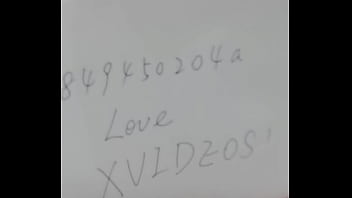 849450204a
Love
XVIDEOS!